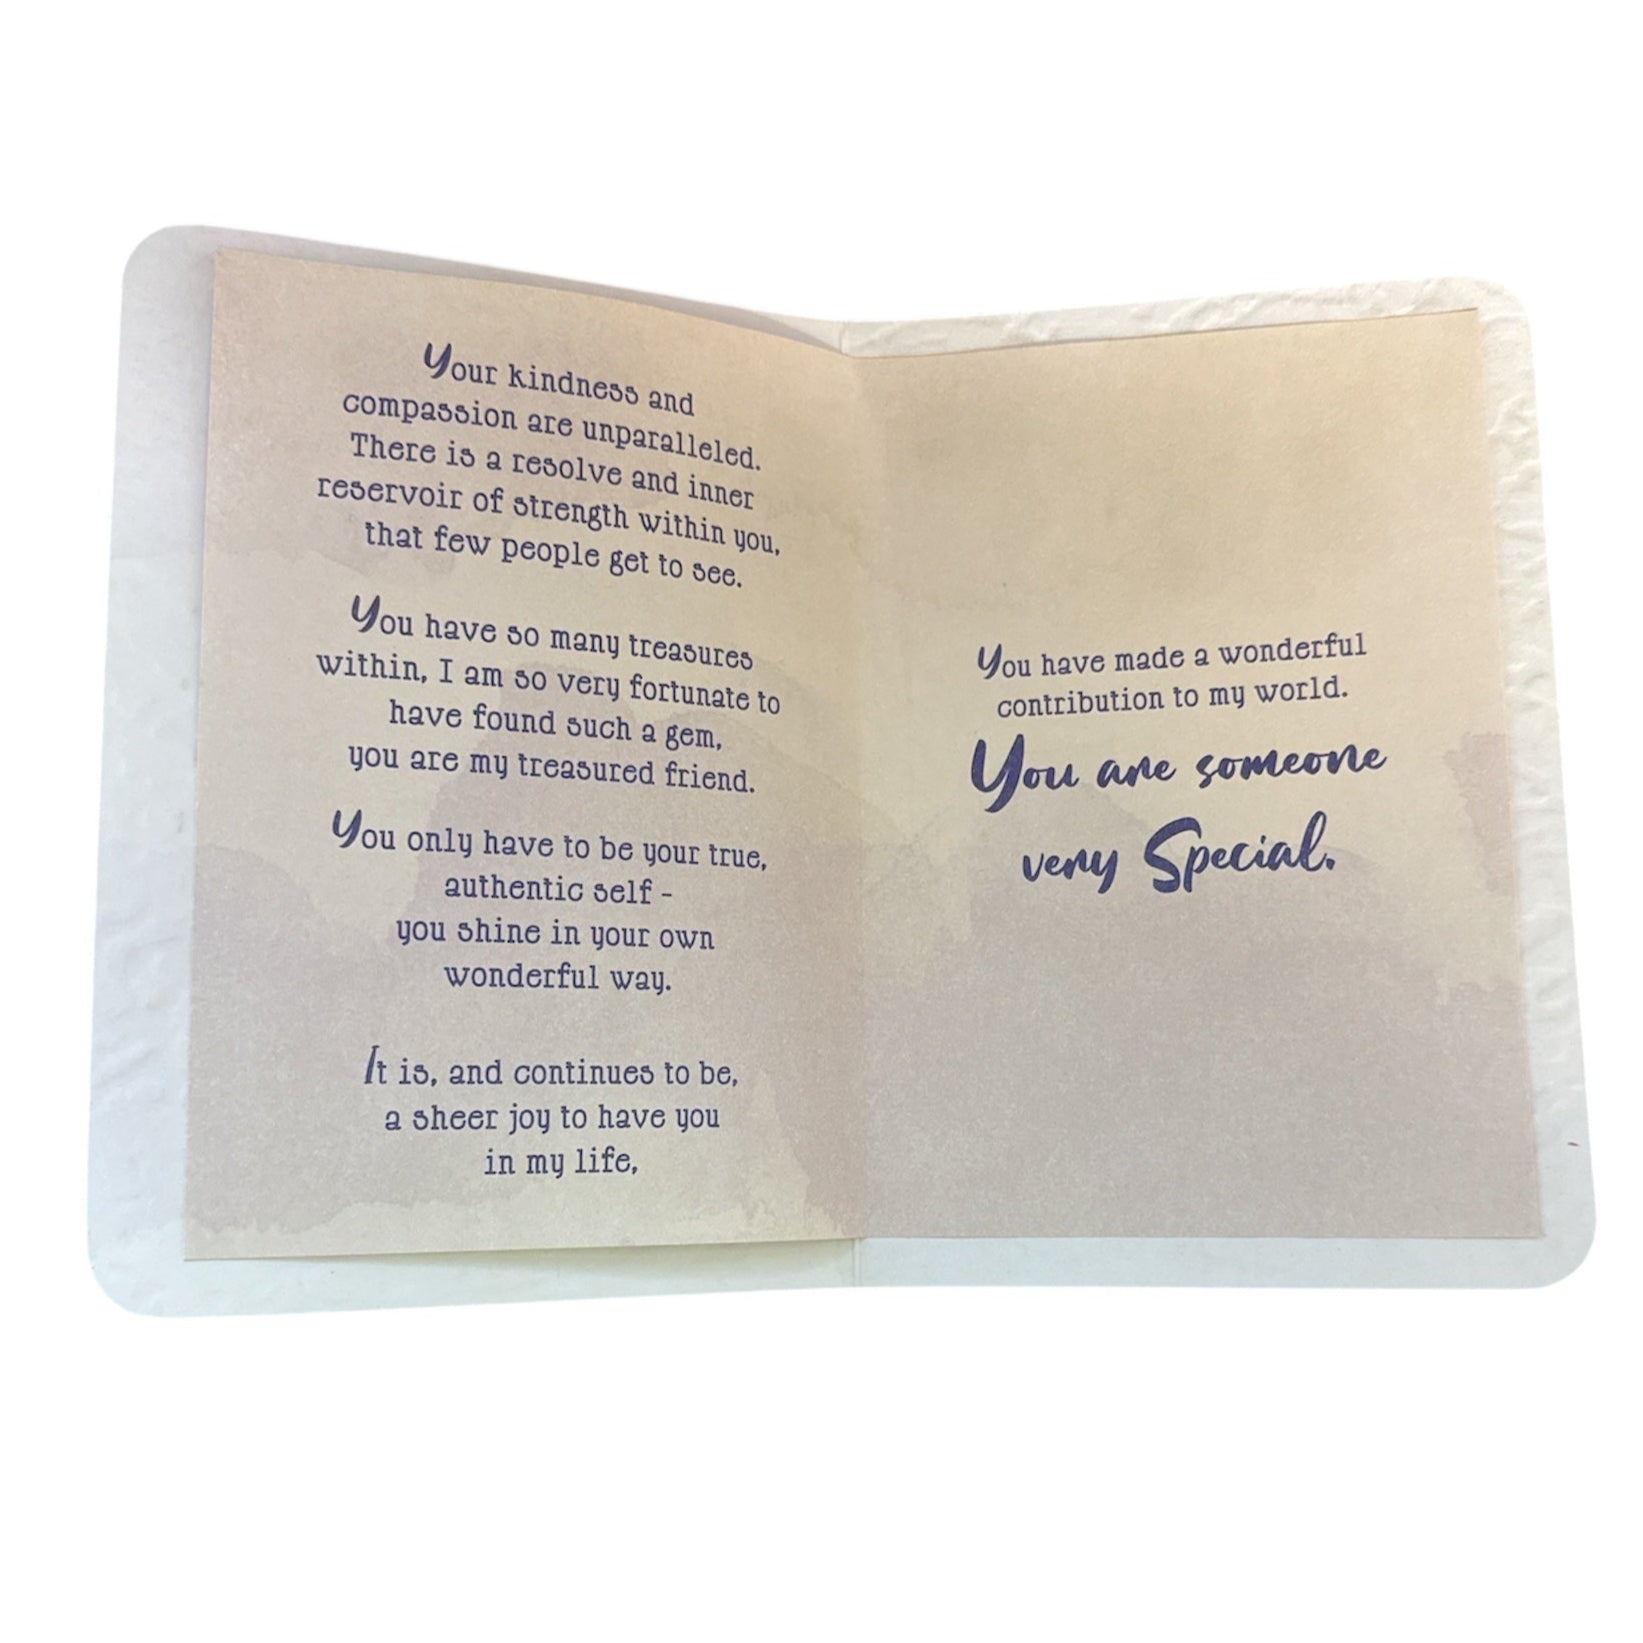 Your kindness and
compassion are unparalleled.
There is a resolve and inner
reservoir of strength within you,
that few people get to see.
You have so many treasures
within, I am so very fortunate to
have found such a gem,
you are my treasured friend.
You only have to be your true,
authentic self -
you shine in your own
wonderful way.
It is, and continues to be,
a sheer joy to have you
in my life,
You have made a wonderful
contribution to my world.
You are someone
very Special.